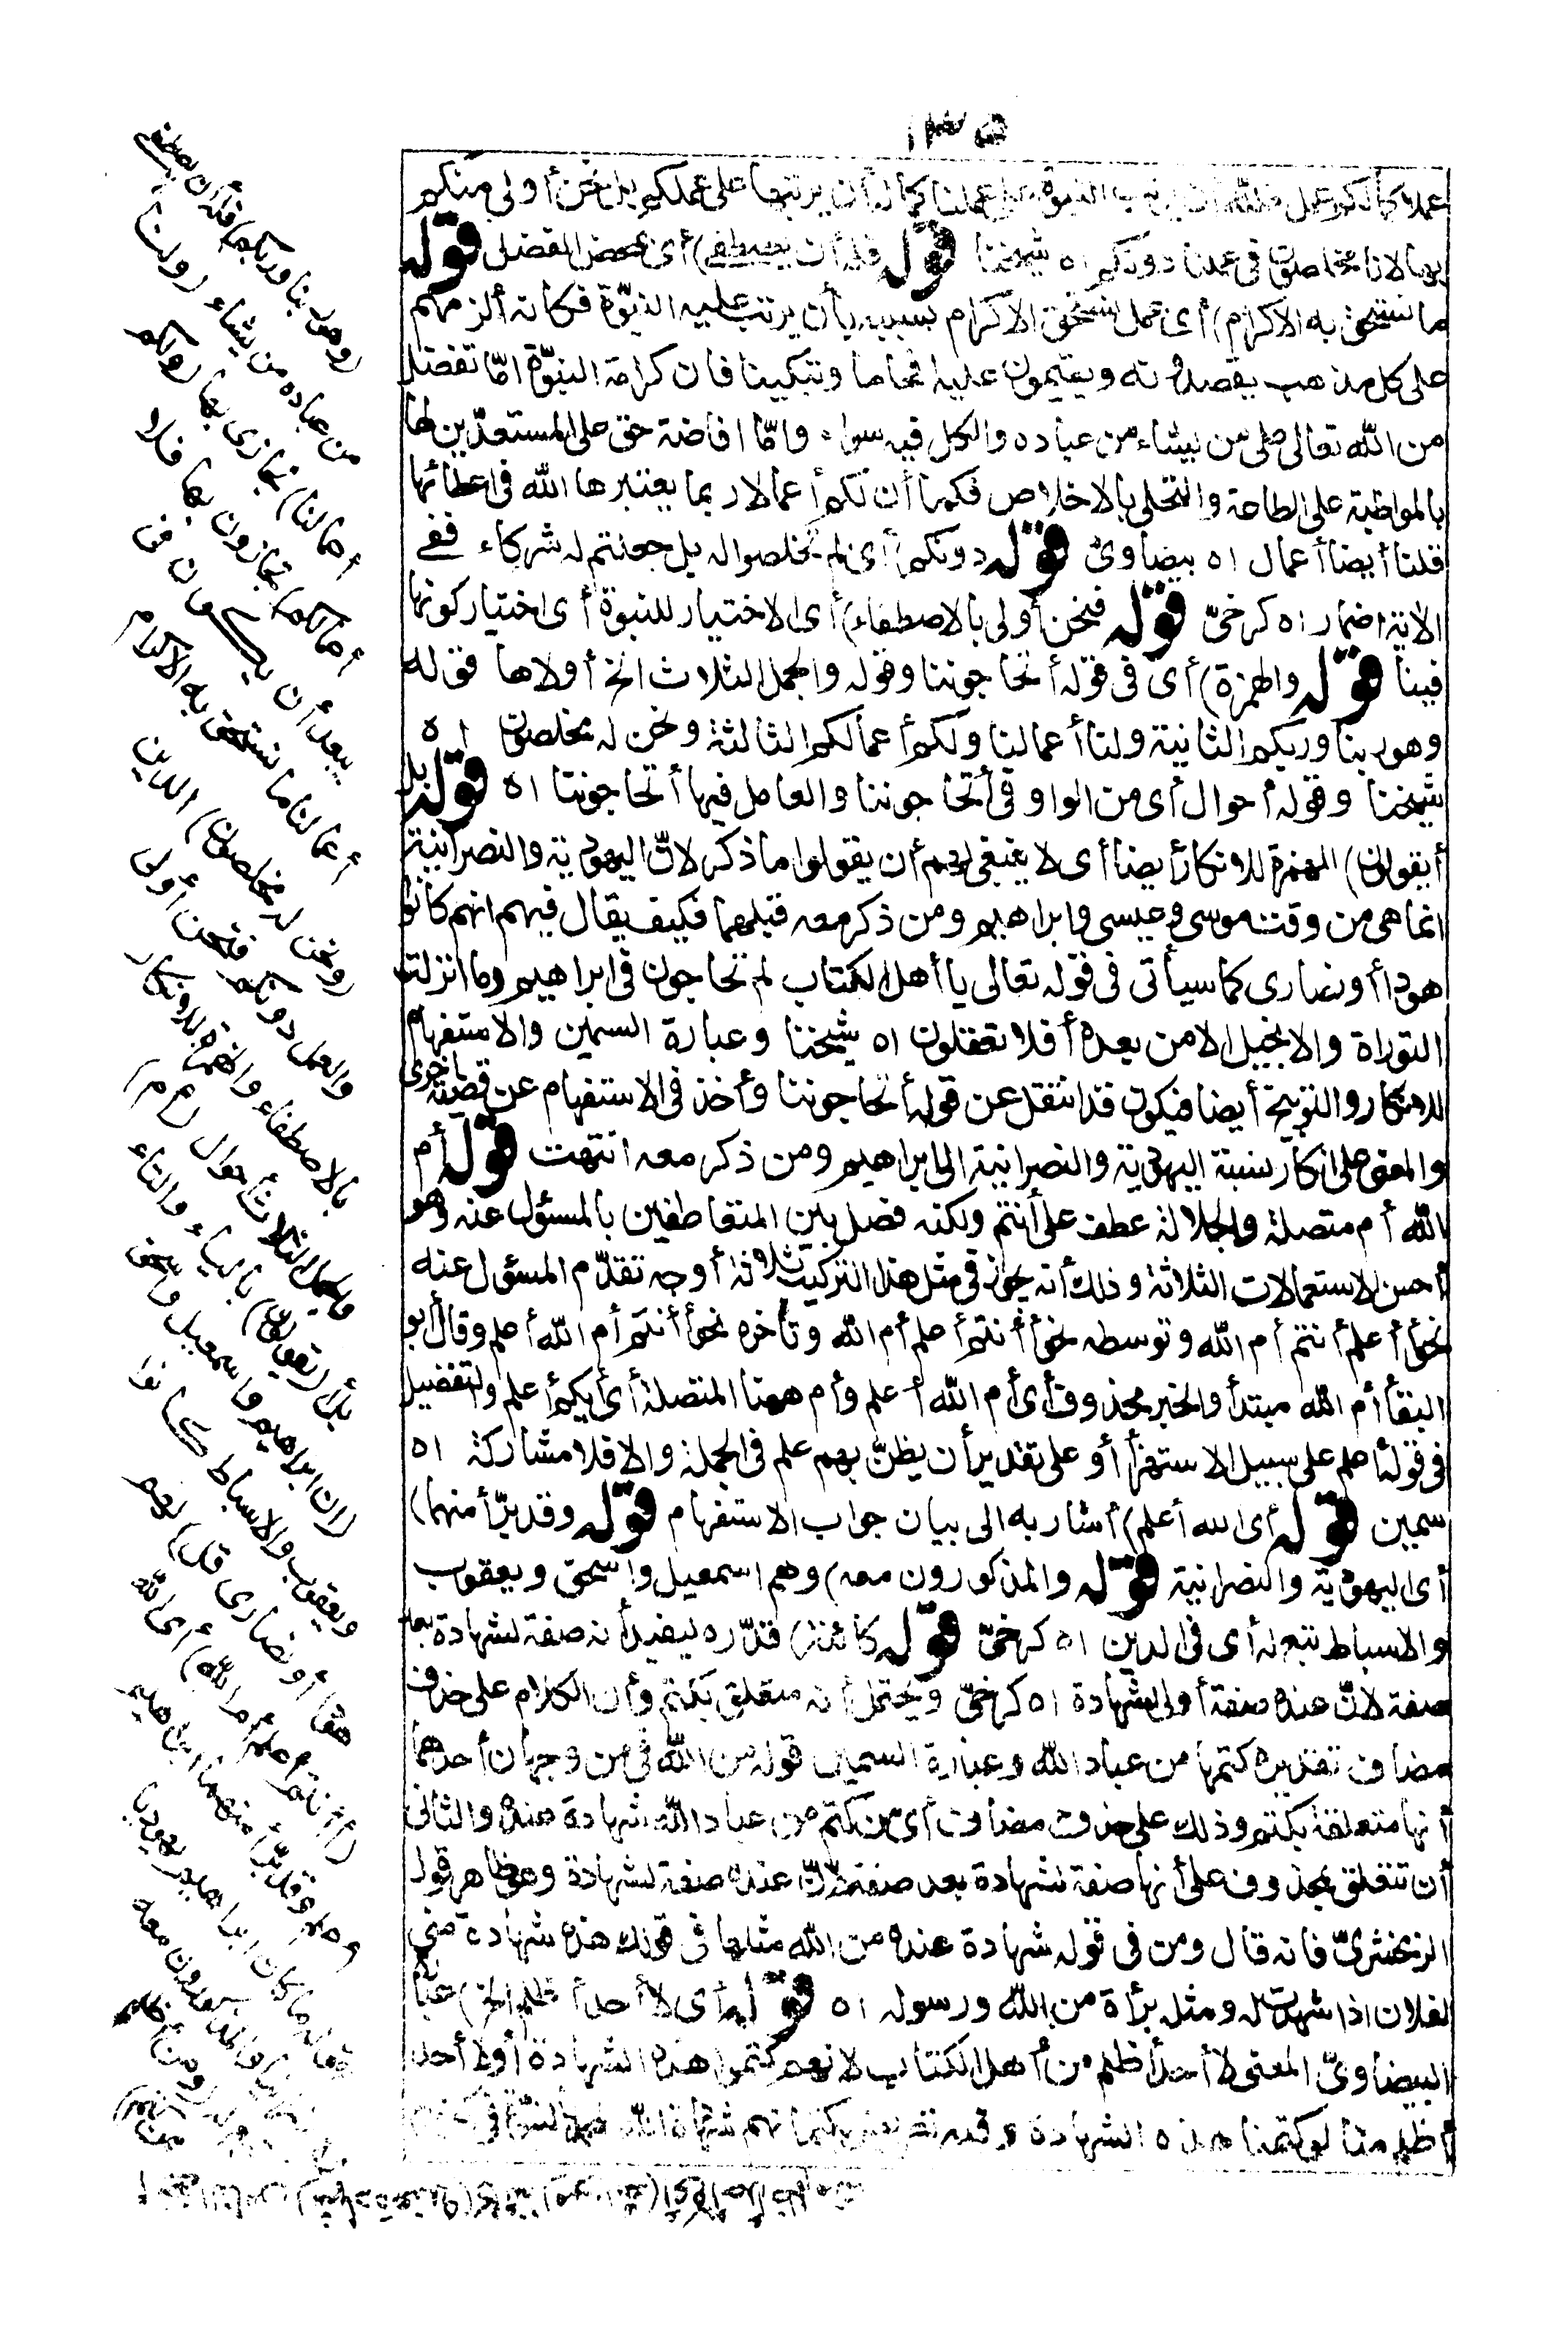 ١٣٥
عملا كما لكم عمل فالله أن يرتب النبوة على عملنا كما له أن يرتبها على عملكم بل نحن أولى منكم
بها لانا مخلصون في عملنا دونكم اه شيخنا قوله فله أن يصطفي) أى بمحض الفضل قوله
ما نستحق به الاكرام) أى عمل نستحق الاكرام بسببه بأن يرتب عليه النبوّة فكأنه ألزمهم
على كل مذهب يقصدونه ويقيمون عليه افحاما وتبكيتا فان كرامة النبوّة امّا تفضل
من الله تعالى على من يشاء من عباده والكل فيه سواء وامّا افاضة حق على المستعدّين لها
بالمواظبة على الطاعة والتحلى بالاخلاص فكما أن لكم أعمالا ربما يعتبرها الله فى اعطائها
فلنا أيضا أعمال اه بيضاوىّ قوله دونكم) أى لم تخلصوا له بل جعلتم له شركاء ففى
الاية اضمار اه كرخىّ قوله فنحن أولى بالاصطفاء) أى الاختيار للنبوة أى اختيار كونها
فينا قوله والهمزة) أى فى قوله أتحاجوننا وقوله والجمل الثلاث الخ أولاها قوله
وهو ربنا وربكم الثانية ولنا أعمالنا ولكم أعمالكم الثالثة ونحن له مخلصون اه
شيخنا وقوله أحوال أى من الواو فى أتحاجوننا والعامل فيها أتحاجوننا اه قوله بل
أيقولون) الهمزة للانكار أيضا أى لا ينبغى لهم أن يقولوا ما ذكر لانّ اليهودية والنصرانية
انما هى من وقت موسى وعيسى وابراهيم ومن ذكر معه قبلهما فكيف يقال فيهم انهم كانوا
هودا أو نصارى كما سيأتى فى قوله تعالى يا أهل الكتاب لم تحاجون فى ابراهيم وما انزلت
التوراة والانجيل الا من بعده أفلا تعقلون اه شيخنا وعبارة السمين والاستفهام
للانكار والتوبيخ أيضا فيكون قد انتقل عن قوله أتحاجوننا وأخذ فى الاستفهام عن قضية أخرى
والمعنى على انكار نسبة اليهودية والنصرانية الى ابراهيم ومن ذكر معه انتهت قوله أم
الله أم متصلة والجلالة عطف على أنتم ولكنه فصل بين المتعاطفين بالمسئول عنه وهو
أحسن الاستعمالات الثلاثة وذلك أنه يجوز فى مثل هذا التركيب ثلاثة أوجه تقدّم المسئول عنه
نحو أأعلم أنتم أم الله وتوسطه نحو أأنتم أعلم أم الله وتأخره نحو أأنتم أم الله أعلم وقال أبو
البقا أم الله مبتدأ والخبر محذوف أى أم الله أعلم وأم ههنا المتصلة أى أيكم أعلم والتفضيل
فى قوله أعلم على سبيل الاستهزأ أو على تقدير أن يظنّ بهم علم فى الجملة والا فلا مشاركة اه
سمين قوله أى الله أعلم) أشار به الى بيان جواب الاستفهام قوله وقد برّأ منهما)
أى اليهودية والنصرانية قوله والمذكورون معه) وهم اسمعيل واسحق ويعقوب
والاسباط تبع له أى فى الدين اه كرخىّ قوله كائنة) قدّره ليفيد أنه صفة لشهادة بعد
صفة لانّ عنده صفة أولى لشهادة اه كرخىّ ويحتمل أنه متعلق بكتم وأن الكلام على حذف
مضاف تقديره كتمها من عباد الله وعبارة السمين قوله من الله فى من وجهان أحدهما
أنها متعلقة بكتم وذلك على حذف مضاف أى من كتم من عباد الله شهادة عنده والثانى
أن تتعلق بمحذوف على أنها صفة لشهادة بعد صفة لانّ عنده صفة لشهادة وهو ظاهر قول
الزمخشرىّ فانه قال ومن فى قوله شهادة عنده من الله مثلها فى قولك هذه شهادة منى
لفلان اذا شهدت له ومثله برأة من الله ورسوله اه قوله أى لا أحد أظلم الخ) عبارة
البيضاوىّ المعنى لا أحد أظلم من أهل الكتاب لانهم كتموا هذه الشهادة أو لا أحد
أظلم منا لو كتمنا هذه الشهادة وفيه تعريض بكتمانهم شهادة الله
(وهو ربنا وربكم) فله أن يصطفى
من عباده من يشاء (ولنا
أعمالنا) نجازى بها (ولكم
أعمالكم) تجازون بها فلا
يبعد أن يكون فى
أعمالنا ما نستحق به الاكرام
(ونحن له مخلصون) الدين
والعمل دونكم فنحن أولى
بالاصطفاء والهمزة للانكار
والجمل الثلاث أحوال (أم)
بل أ(يقولون) بالياء والتاء
(ان ابراهيم واسمعيل واسحق
ويعقوب والاسباط كانوا
هودا أو نصارى قل) لهم
(أأنتم أعلم أم الله) أى الله
أعلم وقد برّأ منهما ابراهيم
بقوله ما كان ابراهيم يهوديا
والمذكورون معه
(ومن أظلم
ممن كتم)